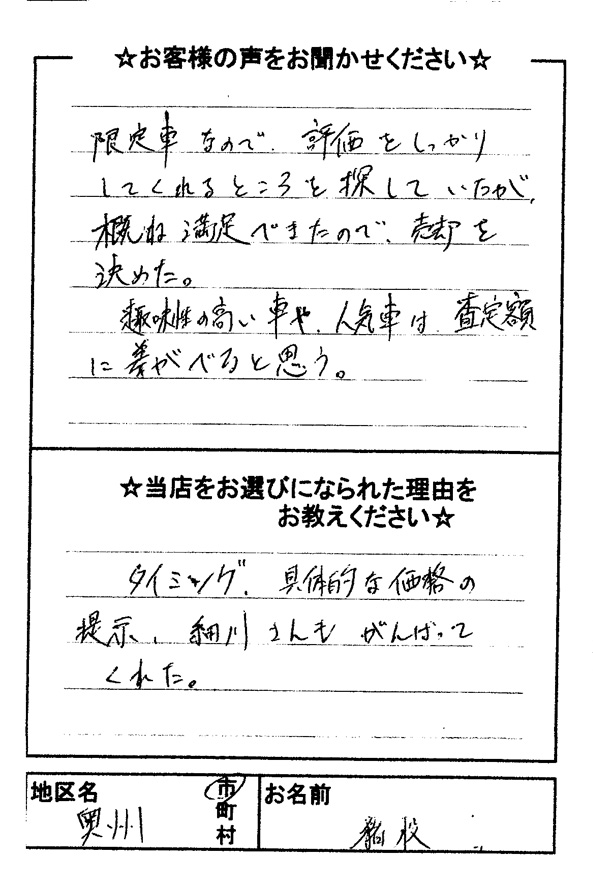 ☆お客様の声をお聞かせください☆
限定車なので、評価をしっかり
してくれるところを探していたが、
概ね満足できたので、売却を
決めた。
趣味性の高い車や、人気車は、査定額
に差がでると思う。
☆当店をお選びになられた理由を
お教えください☆
タイミング、具体的な価格の
提示、細川さんもがんばって
くれた。
地区名
奥州
市
町
村
お名前